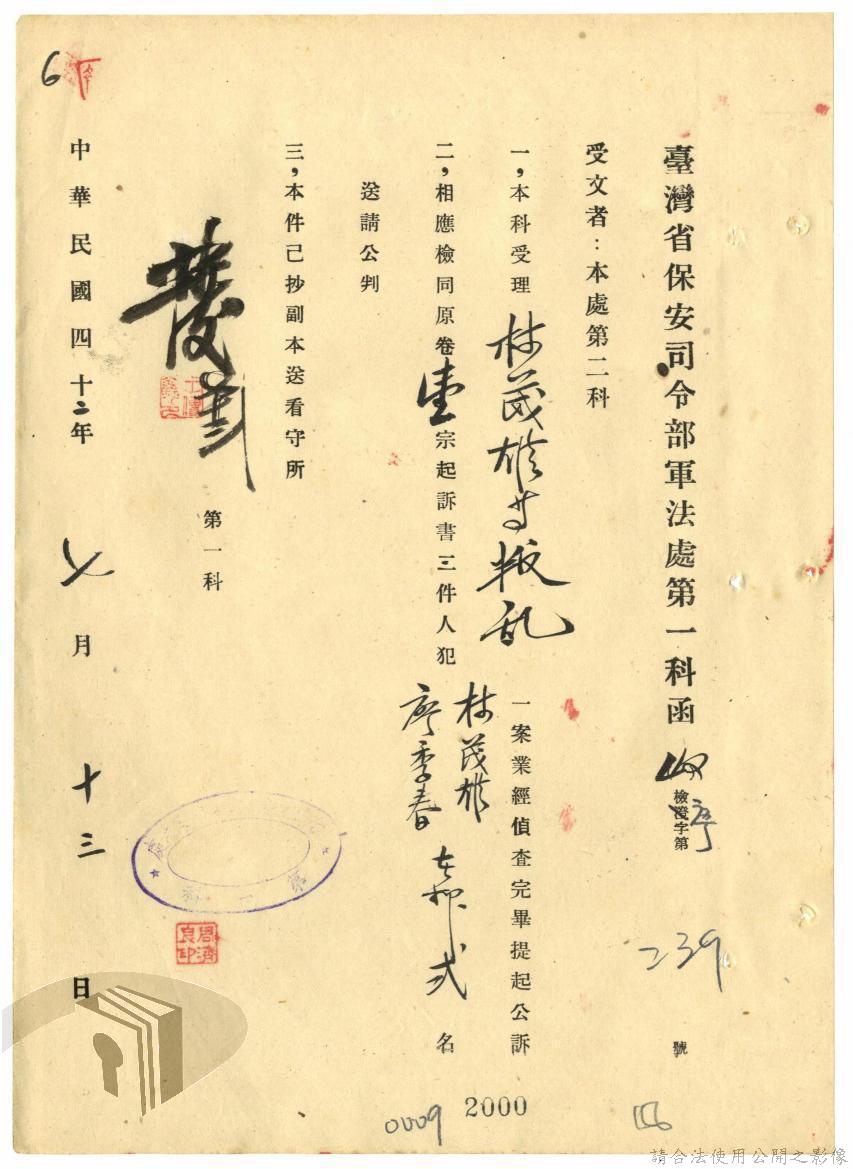 臺灣省保安司令部軍法處第一科函
檢澄字第 序 239 號
受文者：本處第二科
一，本科受理 林茂雄等叛乱 一案業經偵查完畢提起公訴
二，相應檢同原卷壹宗起訴書三件人犯 林茂雄 廖季春 在押 弍 名
送請公判
三，本件已抄副本送看守所
第一科
中華民國四十二年 七 月 十三 日
6
周濟良印
0009 2000
請合法使用公開之影像